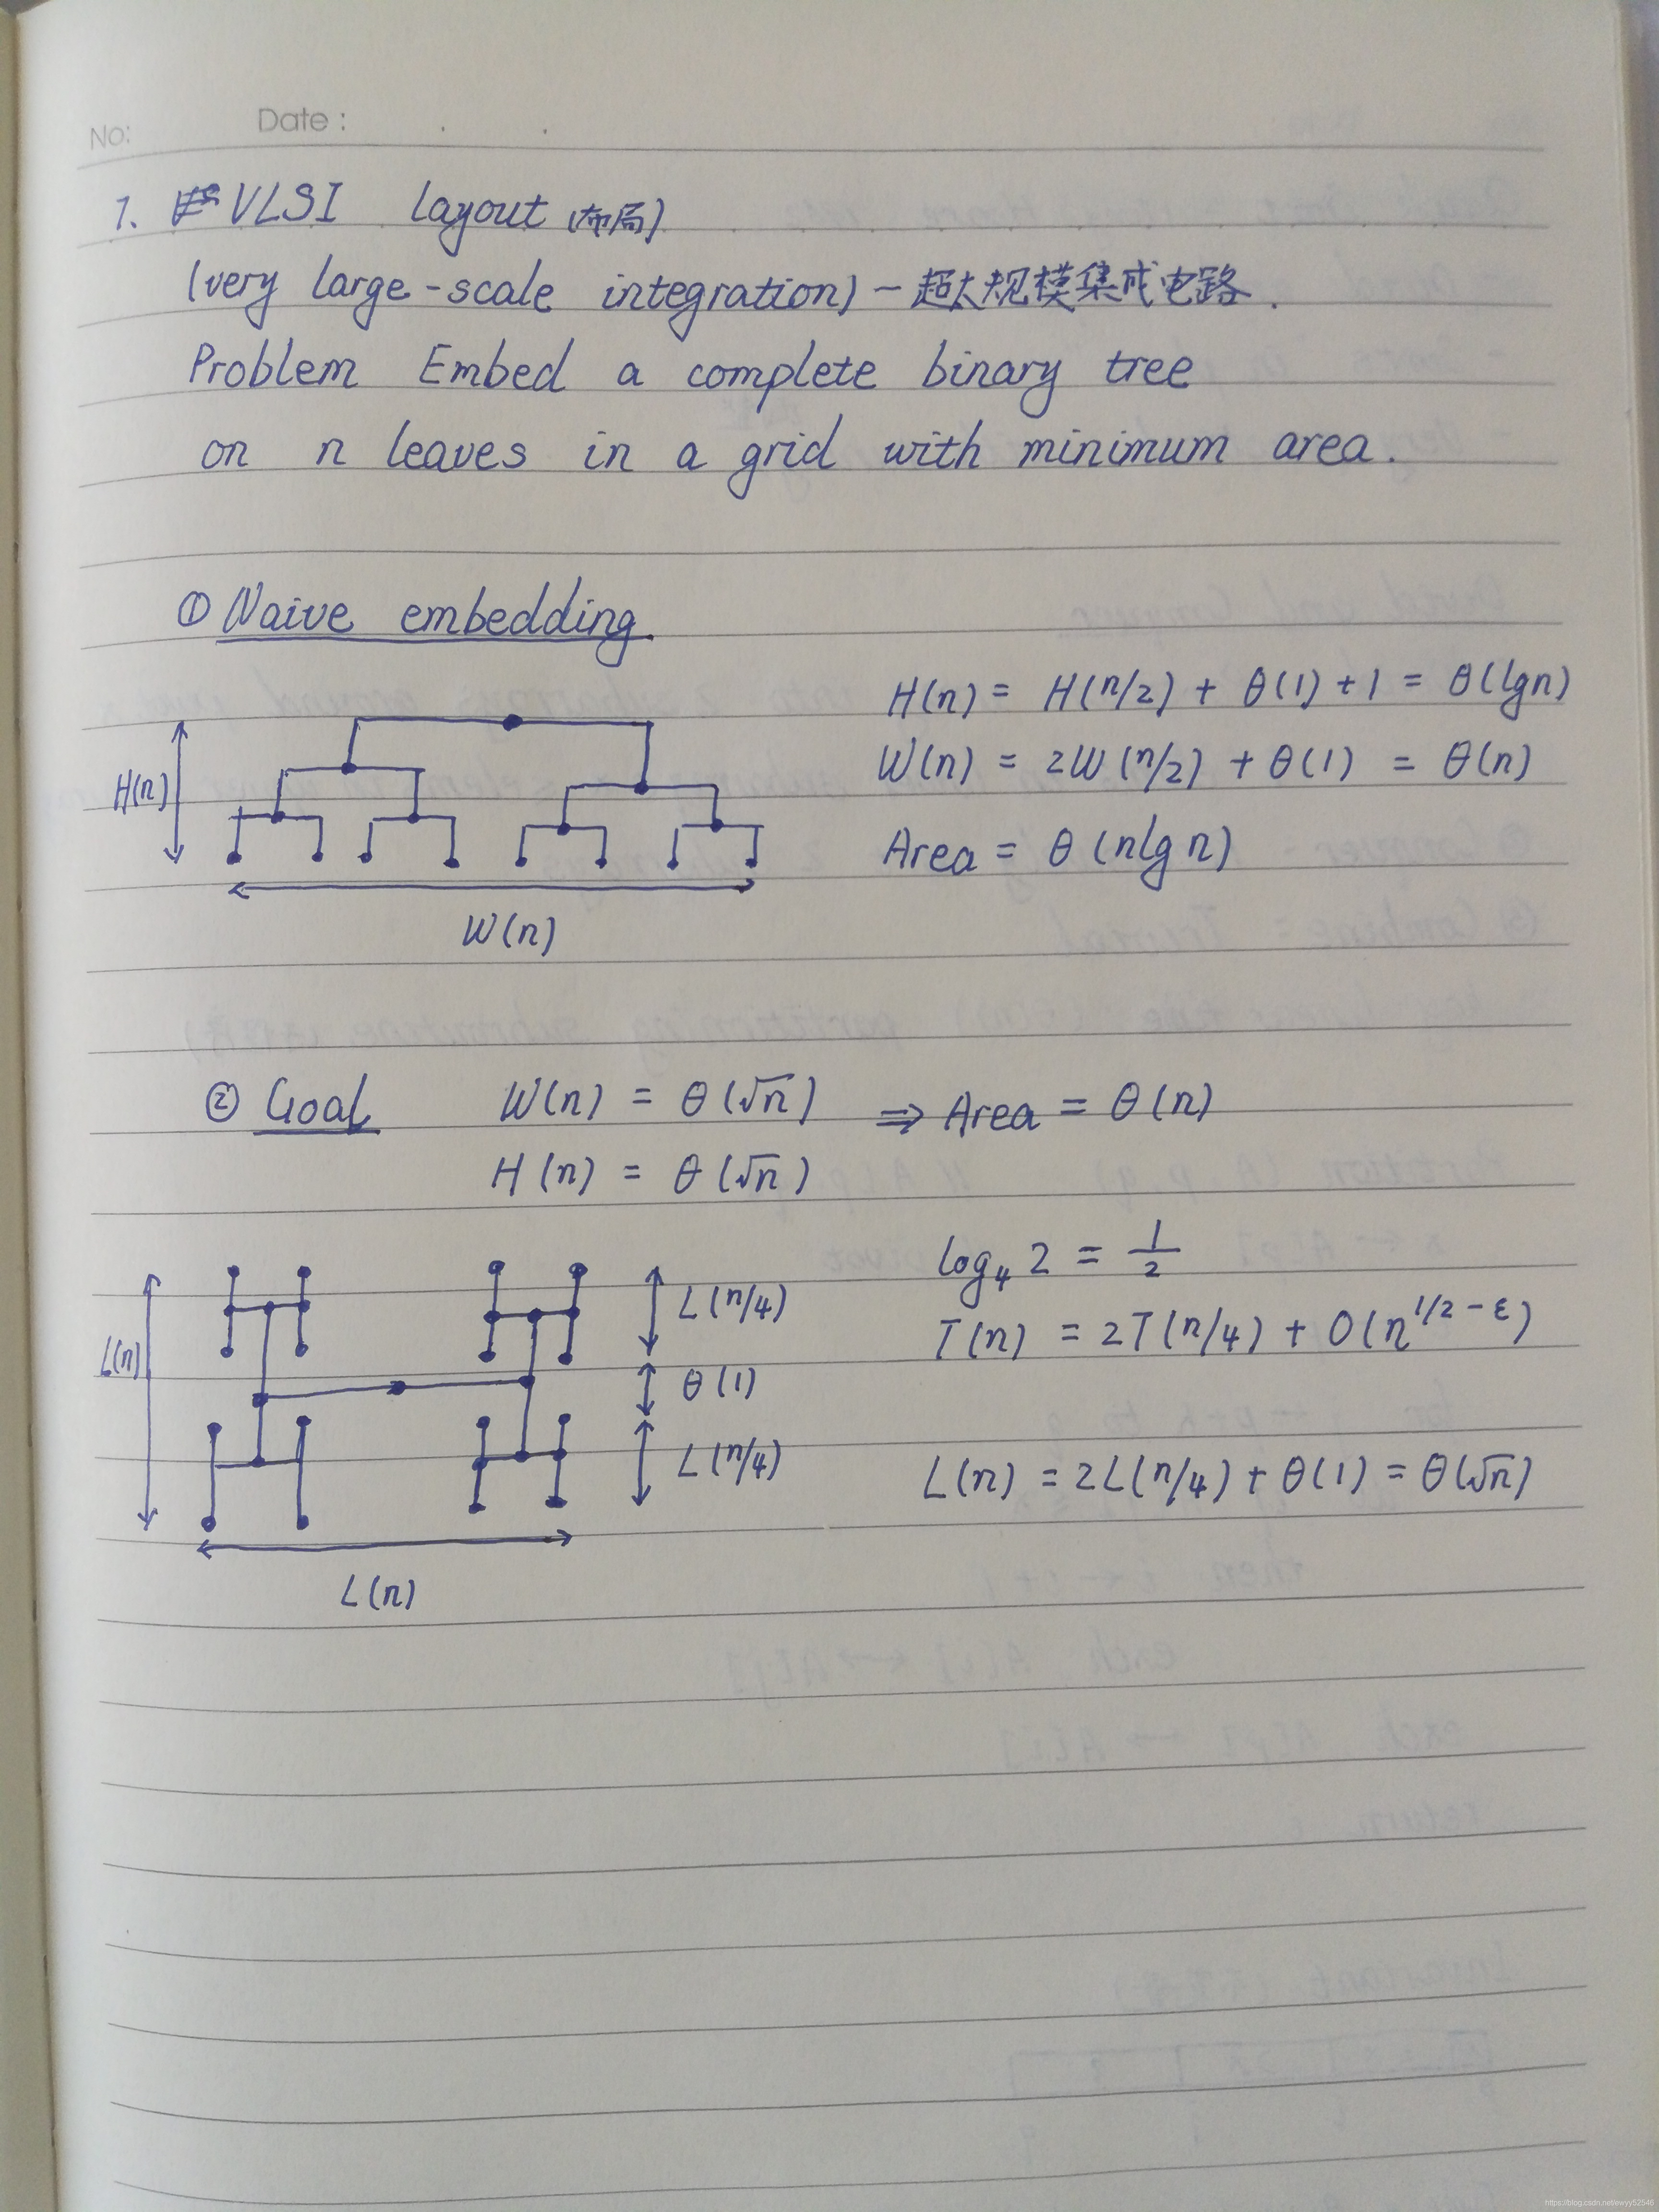 No:
Date :
7. VLSI layout (布局)
(very large-scale integration) - 超大规模集成电路.
Problem Embed a complete binary tree
on n leaves in a grid with minimum area.
① Naive embedding.
H(n) = H(n/2) + θ(1) + 1 = θ(lgn)
W(n) = 2W(n/2) + θ(1) = θ(n)
H(n)
Area = θ(nlgn)
W(n)
② Goal W(n) = θ(√n) ⇒ Area = θ(n)
H(n) = θ(√n)
log₄ 2 = 1/2
L(n/4)
T(n) = 2T(n/4) + O(n^{1/2-ε})
L(n)
θ(1)
L(n/4)
L(n) = 2L(n/4) + θ(1) = θ(√n)
L(n)
https://blog.csdn.net/ewyy52546